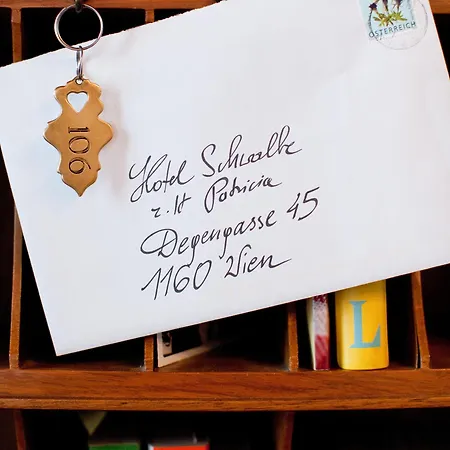 ÖSTERREICH
106
Hotel Schwalbe
z.H Patricia
Degengasse 45
1160 Wien
L